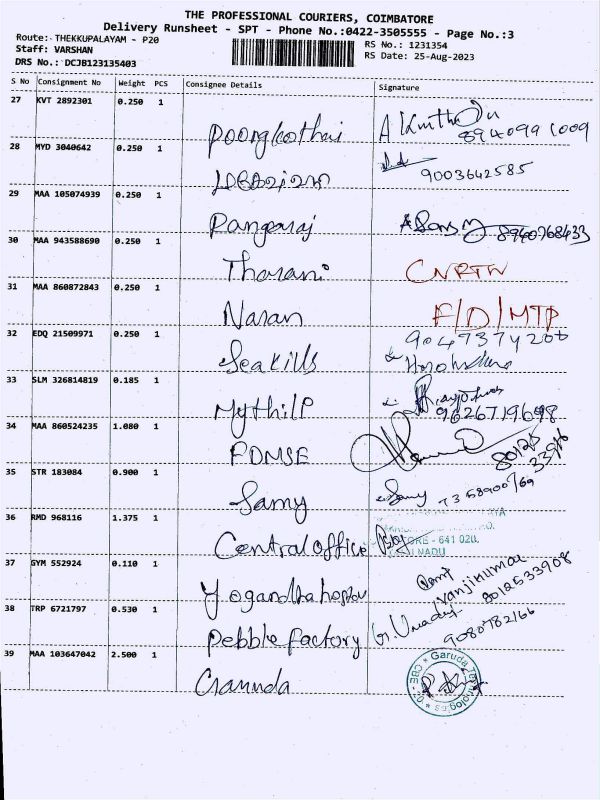 THE PROFESSIONAL COURIERS, COIMBATORE
Delivery Runsheet - SPT - Phone No.:0422-3505555 - Page No.:3
Route: THEKKUPALAYAM - P20
RS No.: 1231354
Staff: VARSHAN
RS Date: 25-Aug-2023
DRS No.: DCJB123135403
S No Consignment No Weight PCS Consignee Details Signature
27 KVT 2892301 0.250 1
Poongkothai
28 MYD 3040642 0.250 1
9003642585
29 MAA 105074939 0.250 1
Rangaraj 8940768433
30 MAA 943588690 0.250 1
Tharani CNRTN
31 MAA 860872843 0.250 1
Naran F/D/MTP
32 EDQ 21509971 0.250 1
Seakills
33 SLM 326814819 0.185 1
MythilP
34 MAA 860524235 1.080 1
PDMSE
35 STR 183084 0.900 1
Samy Samy
36 RMD 968116 1.375 1
Central office ORE - 641 020.
NADU
37 GYM 552924 0.110 1
8012533908
38 TRP 6721797 0.530 1
Pebble factory 9080782166
39 MAA 103647042 2.500 1
Garuda Technologies CBE